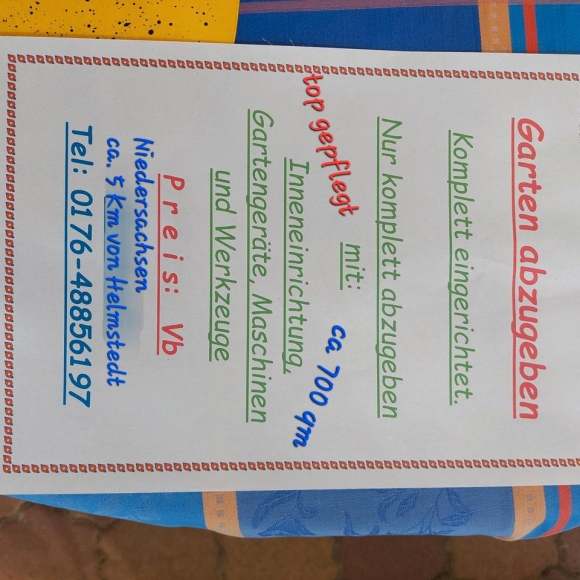 Garten abzugeben
Komplett eingerichtet.
Nur komplett abzugeben
mit:
top gepflegt
ca 700 qm
Inneneinrichtung,
Gartengeräte, Maschinen
und Werkzeuge
Preis: Vb
Niedersachsen
ca. 5 km von Helmstedt
Tel: 0176-48856197